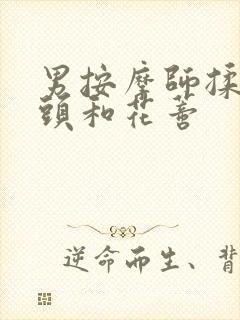 男按摩師揉
頭和花蕾
逆命而生、背